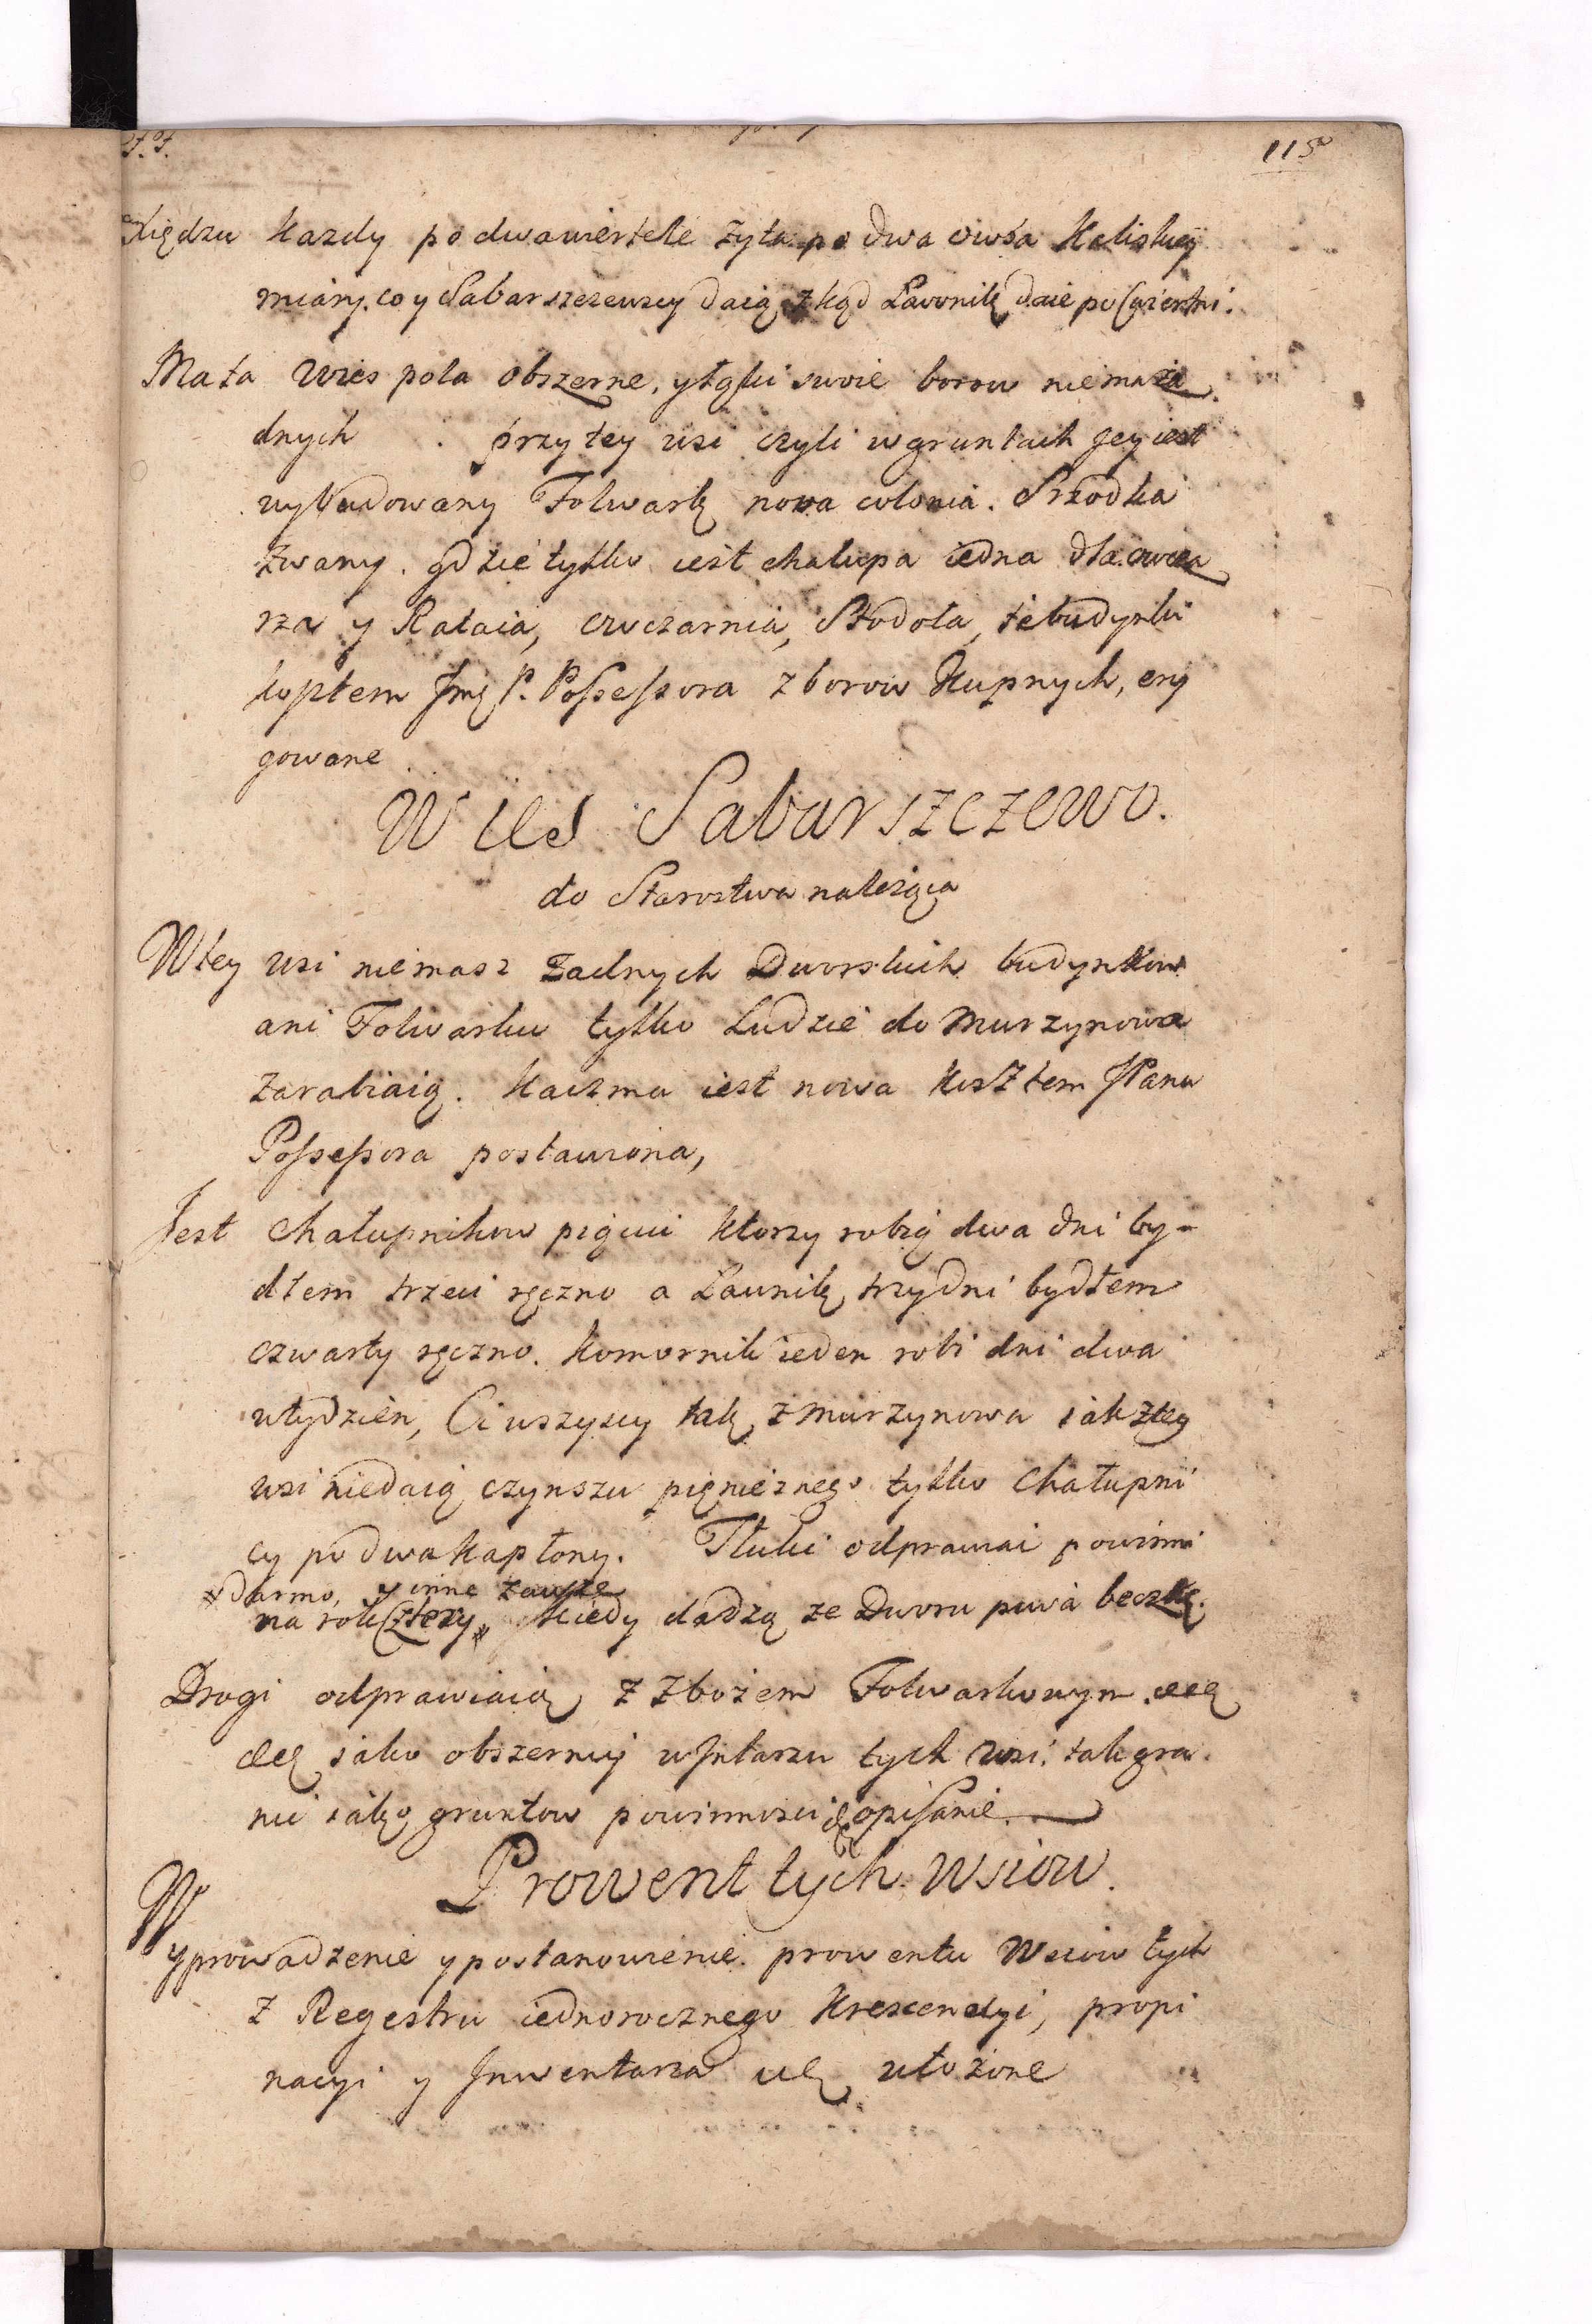 115
Xiędzu kazdy po dwawiertele zyta po dwa owsa Kaliskiey
miary, co y Sabarszczewscy daią zkąd Ławnik daie po cwiertni.
Mała Wies pola obszerne, y łąki swoie borow niema ża
dnych . przy tey wsi czyli w gruntach Jey iest
wybudowany Folwark nowa colonia. Srzodka
zwany. gdzie tylko iest chalupa iedna dla owcza
rza y Rataia, owczarnia, Stodoła, te budynki
kosztem Jmę P. Possessora z borow Kupnych, ery
gowane
Wies Sabarszczewo.
do Starostwa naleząca
W tey wsi niemasz zadnych Dworskich budynkow
ani Folwarku tylko Ludzie do Murzynowa
zarabiaią. Kaczma iest nowa Kosztem JPana
Possessora postawiona,
Jest Chałupnikow pięciu ktorzy robią dwa dni by-
dłem trzeci ręczno a Ławnik trzy dni bydłem
czwarty ręczno. Komornik ieden robi dni dwa
w tydzien, Ci wszyscy tak z Murzynowa iak z tey
wsi niedaią czynszu pięnieznego tylko Chałupni
cy po dwa kapłony. Tłuki odprawiai powinni
* darmo, y inne zawsze
na rok Cztery * kiedy dadzą ze Dworu piwa beczkę.
Drogi odprawiaią z Zbożem Folwarkowym
iako obszerniey w Jntarzu tych wsi. tak gra
nic iako gruntow powinnosci &c opisanie
Prowent tych Wsiow.
Wyprowadzenie y postanowienie prowentu Wsiow tych
z Regestru iednorocznego Krescencyi, propi
nacyi y Jnwentarza ułożone